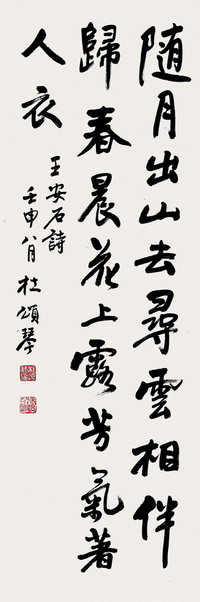 随月出山去尋雲相伴
歸春晨花上露芳氣著
人衣
王安石詩
壬申八月杜頌琴